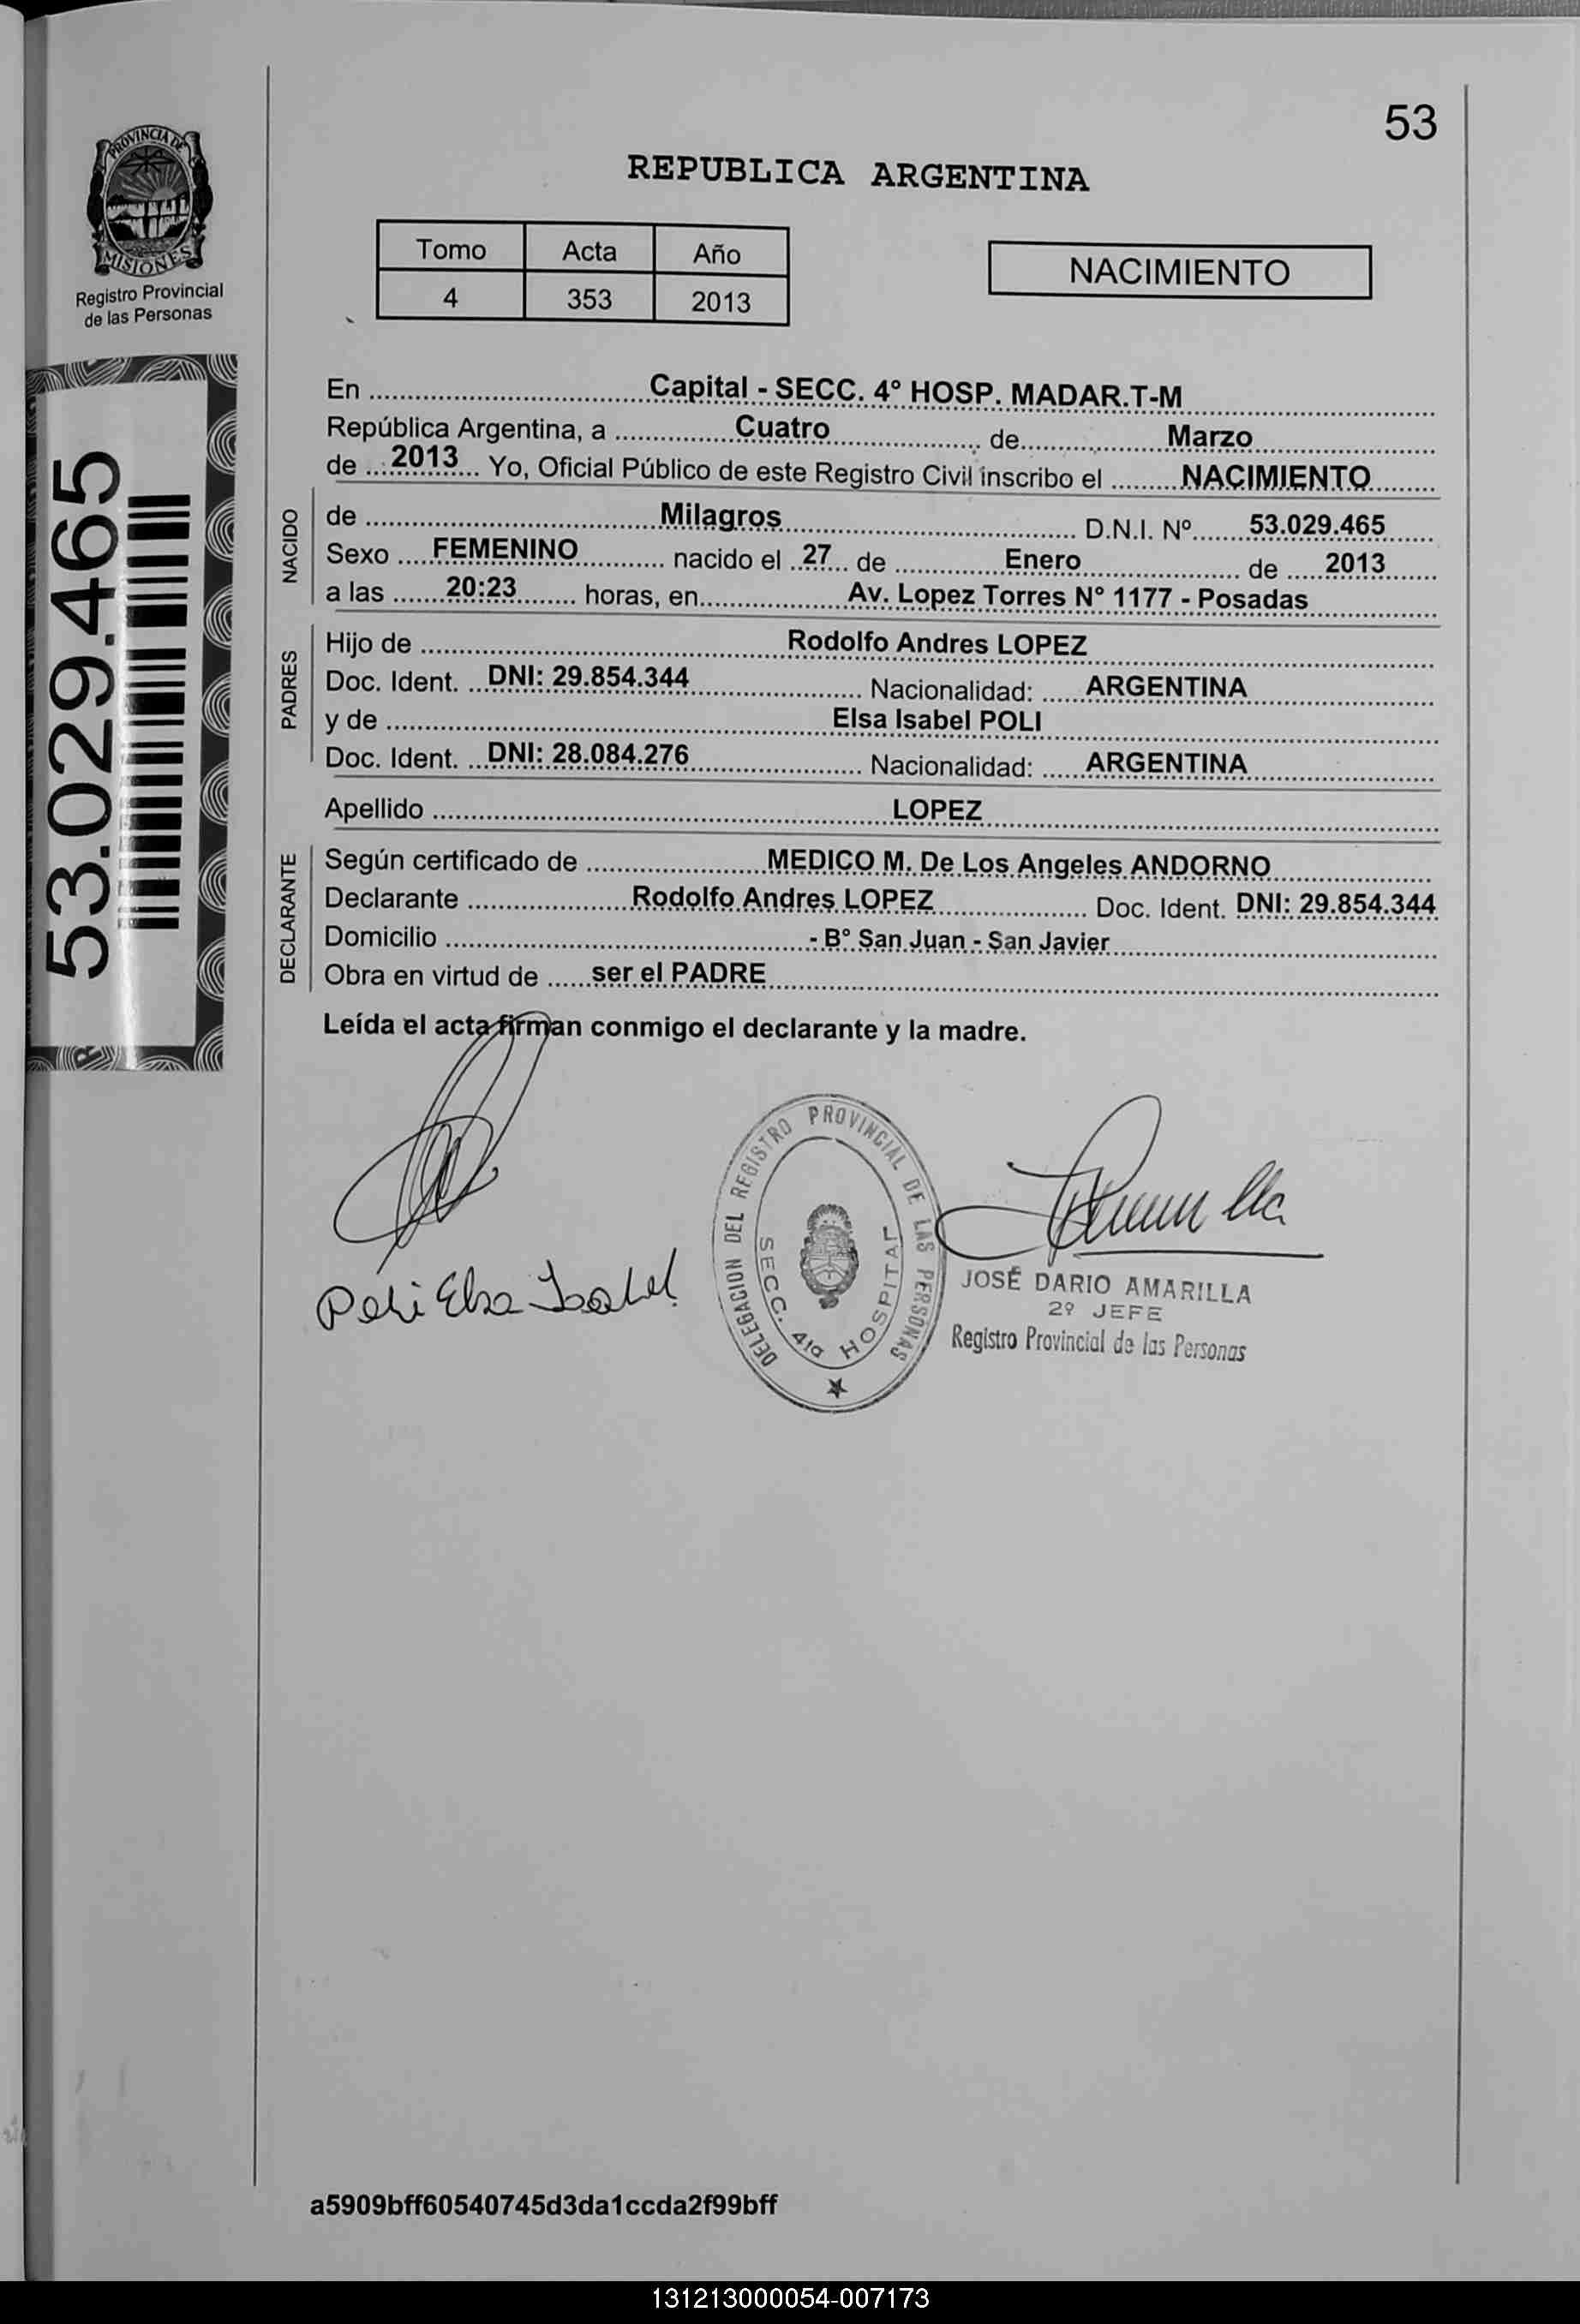 53
PROVINCIA DE
MISIONES
Registro Provincial
de las Personas
REPUBLICA ARGENTINA
Tomo Acta Año
4 353 2013
NACIMIENTO
53.029.465
En Capital - SECC. 4° HOSP. MADAR.T-M
República Argentina, a Cuatro de Marzo
de 2013 Yo, Oficial Público de este Registro Civil inscribo el NACIMIENTO
NACIDO
de Milagros D.N.I. Nº 53.029.465
Sexo FEMENINO nacido el 27 de Enero de 2013
a las 20:23 horas, en Av. Lopez Torres N° 1177 - Posadas
PADRES
Hijo de Rodolfo Andres LOPEZ
Doc. Ident. DNI: 29.854.344 Nacionalidad: ARGENTINA
y de Elsa Isabel POLI
Doc. Ident. DNI: 28.084.276 Nacionalidad: ARGENTINA
Apellido LOPEZ
DECLARANTE
Según certificado de MEDICO M. De Los Angeles ANDORNO
Declarante Rodolfo Andres LOPEZ Doc. Ident. DNI: 29.854.344
Domicilio - B° San Juan - San Javier
Obra en virtud de ser el PADRE
Leída el acta firman conmigo el declarante y la madre.
Poli Elsa Isabel
DELEGACION DEL REGISTRO PROVINCIAL DE LAS PERSONAS
SECC. 4ta HOSPITAL
JOSÉ DARIO AMARILLA
2º JEFE
Registro Provincial de las Personas
a5909bff60540745d3da1ccda2f99bff
131213000054-007173